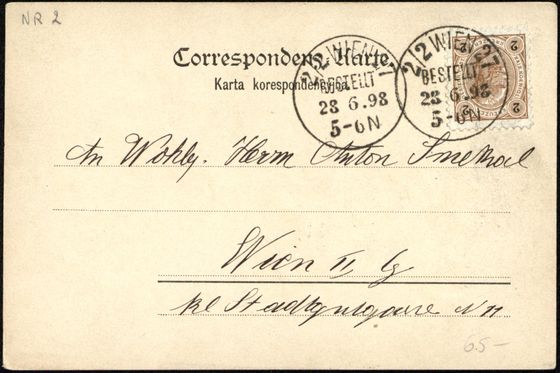 NR 2
Correspondenz-Karte.
Karta korespondencyjna.
2/2 WIEN 2/7
BESTELLT
28.6.98
5-6N
2/2 WIEN 2/7
BESTELLT
28.6.98
5-6N
2 2
2 2
An Wohlg. Herrn Anton Smekal
Wien II
kl Stadtgutgasse N 11
65-